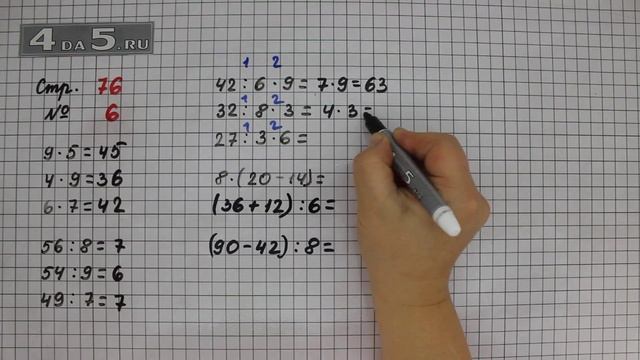 4 DA 5.RU
Стр. 76
№ 6
9·5=45
4·9=36
6·7=42
56:8=7
54:9=6
49:7=7
1 2
42:6·9=7·9=63
1 2
32:8·3=4·3=
1 2
27:3·6=
8·(20-14)=
(36+12):6=
(90-42):8=